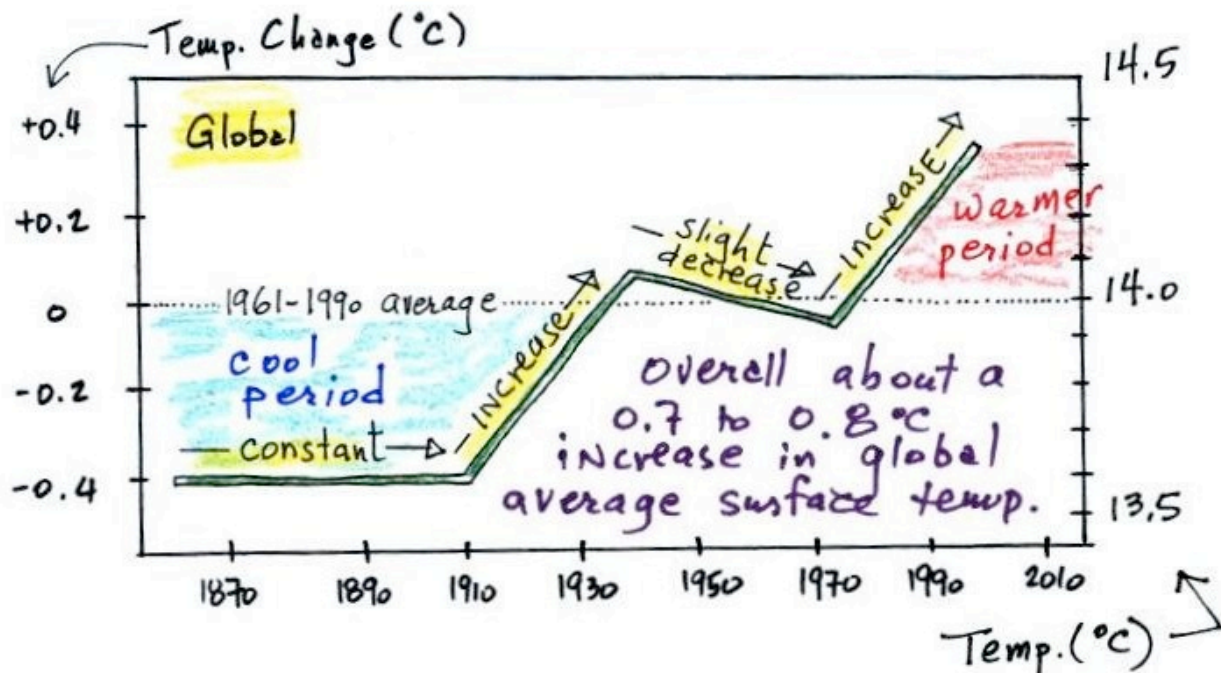 Temp. Change (°C)
14.5
+0.4
Global
+0.2
0
-0.2
-0.4
1961-1990 average
cool
period
constant
increase
slight
decrease
increase
warmer
period
14.0
overall about a
0.7 to 0.8°C
increase in global
average surface temp.
13.5
1870 1890 1910 1930 1950 1970 1990 2010
Temp. (°C)